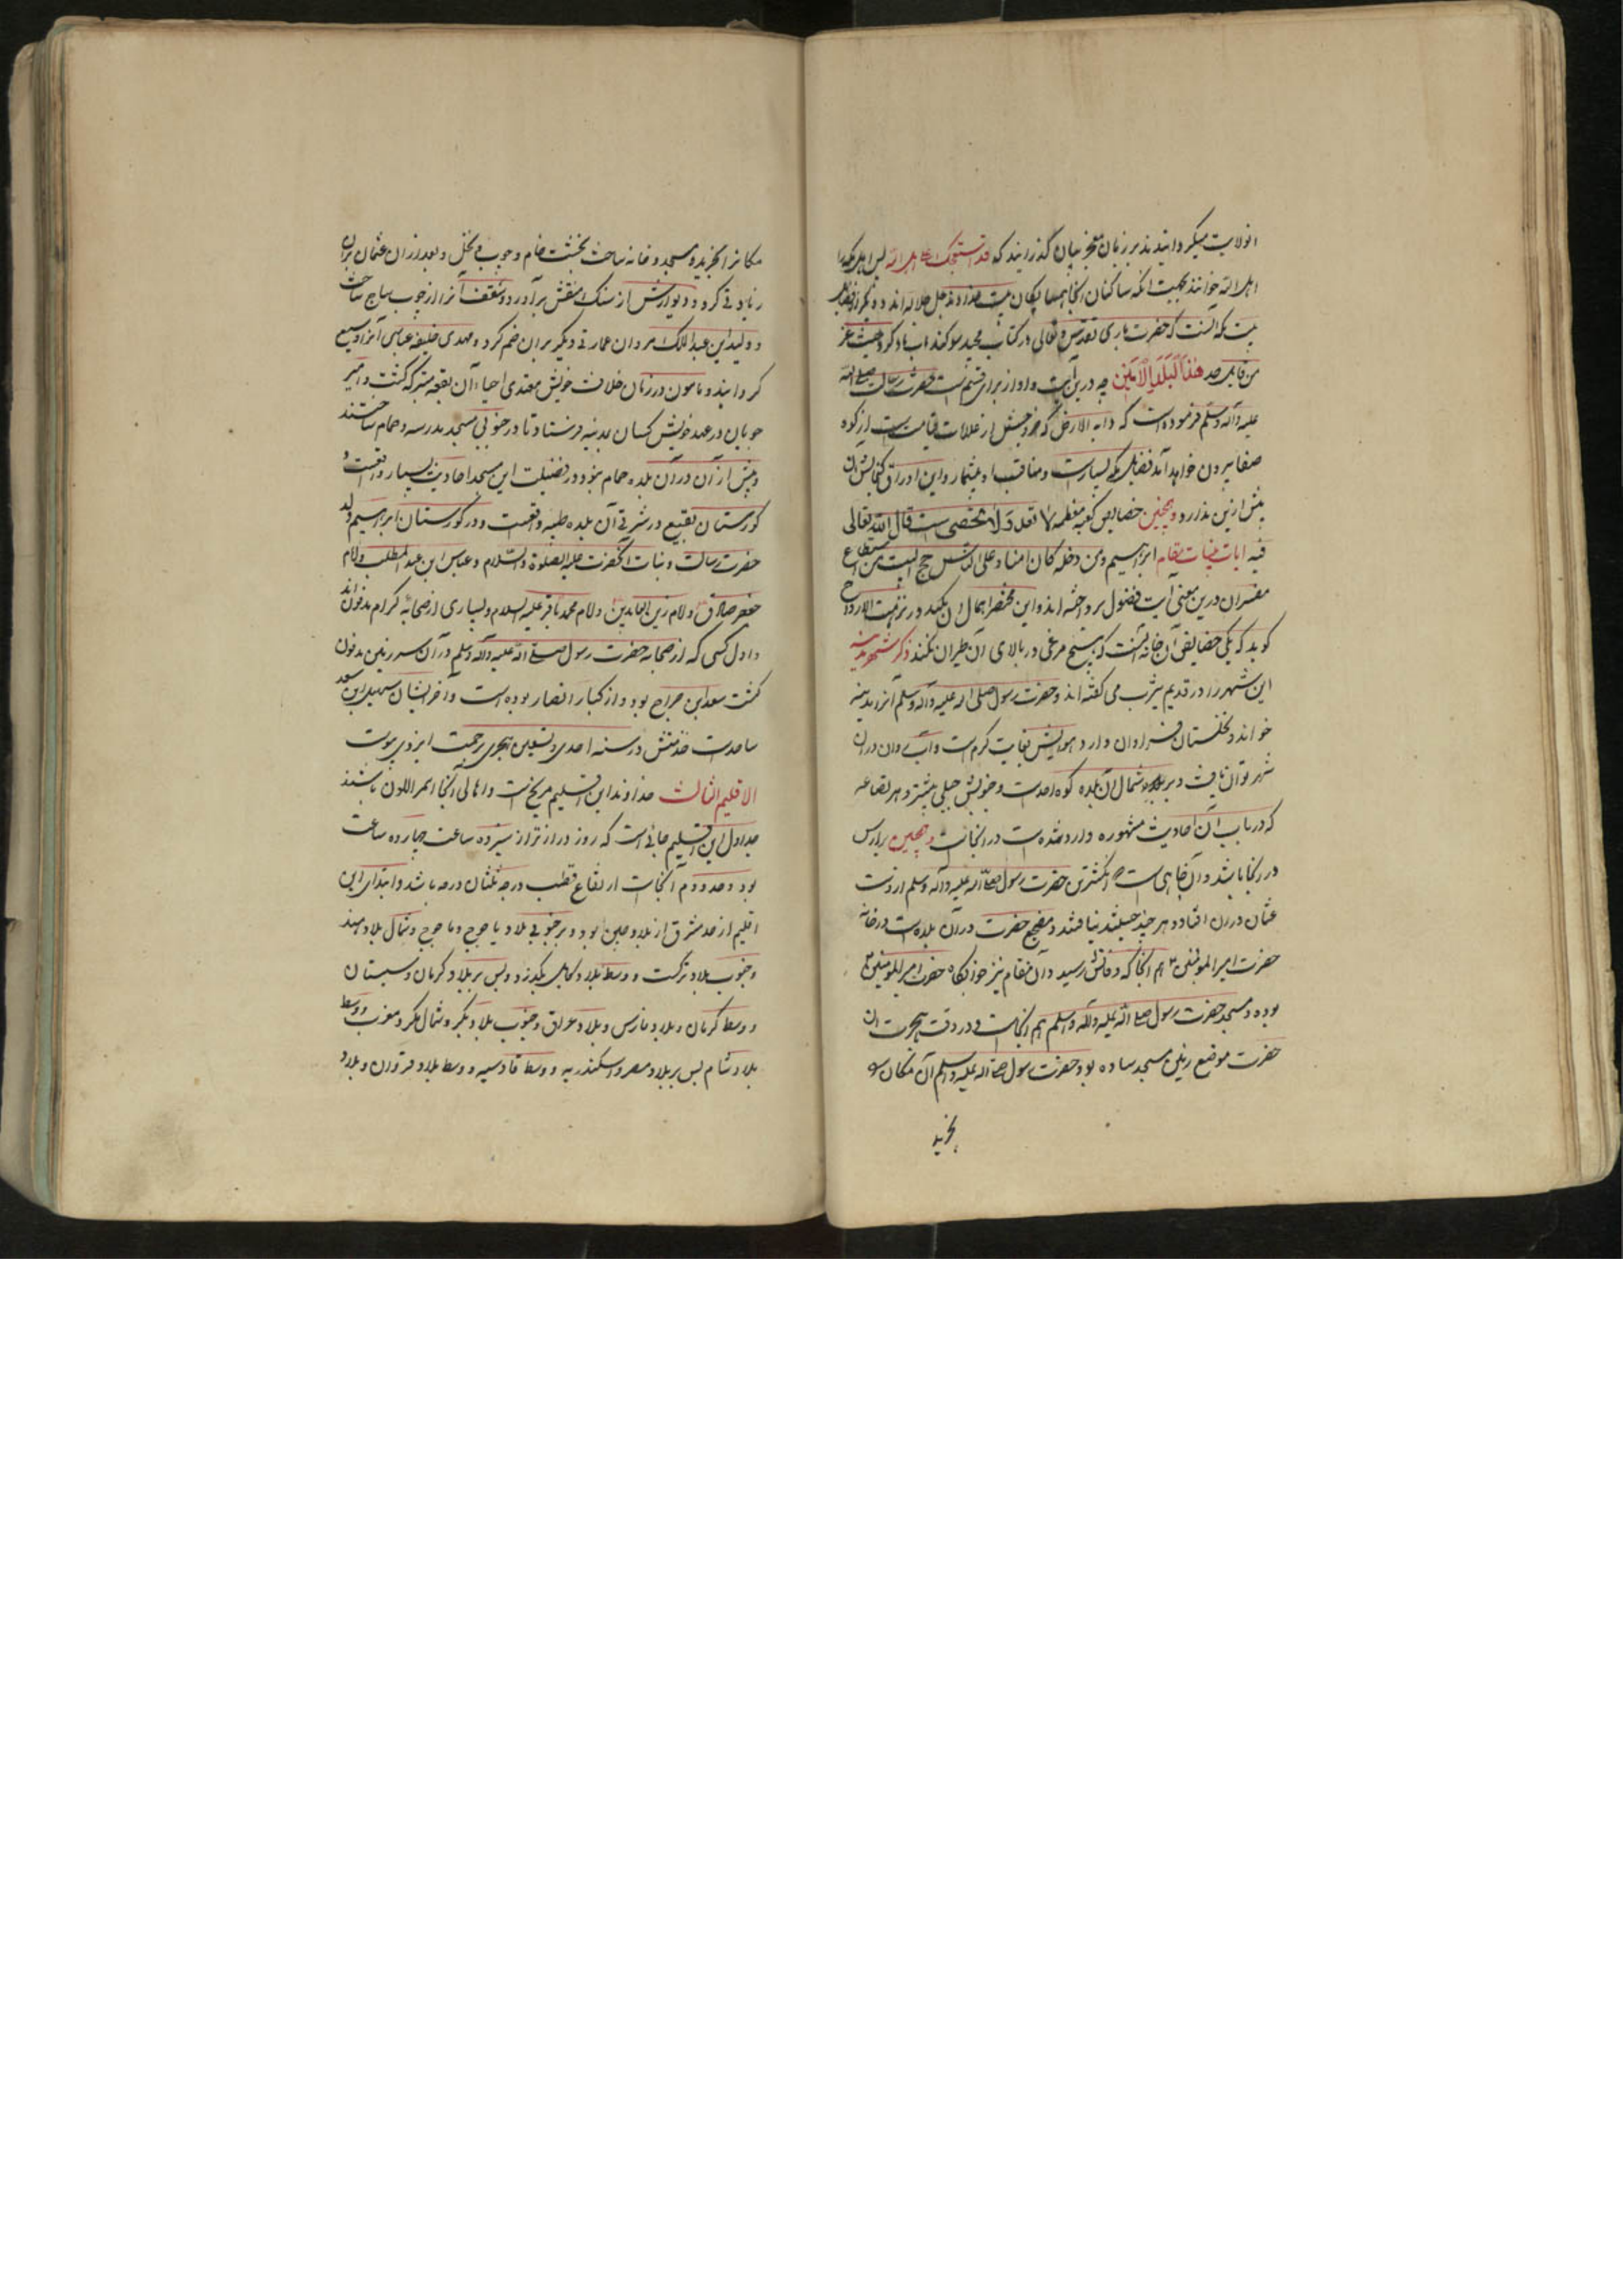 انولایت میگردانیدند بر زبان معجز بیان گذرانیدند که قد استعملتک علی اهل الله پس اهل مکه را
اهل الله خوانند بجهت انکه ساکنان انجا همسایکان بیت خداوند جل جلاله اند و دیگر از فضایل
بیت مکه آنست که حضرت باری تقدس و تعالی در کتاب مجید سوکند بان یاد کرد حیث عز
من قایل هذا البلد الامین چه درین آیت واو از برای قسم است حضرت رسالت صلی الله
علیه وآله وسلم فرموده است که دابه الارض که خروجش از علامات قیامت است از کوه
صفا بیرون خواهد آمد فضایل مکه بسیارست و مناقب او بیشمار و این اوراق گنجایش ان
بیش ازین ندارد و همچنین خصایص کعبه معظمه لا تعد و لا تحصی ست قال الله تعالی
فیه ایات بینات مقام ابراهیم ومن دخله کان امنا و علی الناس حج البیت من استطاع
مفسران درین معنی آیت فصول پرداخته اند و این مختصر احتمال ان نکند در نزهت الارواح
کوید که یکی خصایص آن خانه آنست که هیچ مرغی در بالای آن طیران نکند ذکر شهر مدینه
این شهر را در قدیم یثرب می گفته اند و حضرت رسول صلی الله علیه وآله وسلم آنرا مدینه
خواند و نخلستان فراوان دارد هوایش بغایت کرم است و آب روان دران
شهر توان یافت و بر شمال آن بلده کوه احدست و جنوبش جبلی بیشتر و هر بضاعه
که در باب آن احادیث مشهوره وارد شده است در انجاست و همچنین بیر ارس
در انجا باشد و آن چاهی است که انکشترین حضرت رسول صلی الله علیه وآله وسلم از دست
عثمان در ان افتاد و هر چند جستند نیافتند و مضجع حضرت در آن بلده است در خانه
حضرت امیر المومنین هم انجا که وفاتش رسید و آن مقام نیز خوابگاه حضرت امیر المومنین
بوده و مسجد حضرت رسول صلی الله علیه وآله وسلم هم انجاست و در وقت هجرت ان
حضرت موضع زمین مسجد ساده بود حضرت رسول صلی الله علیه وسلم آن مکان را
بخرید
مکانرا بخرید و مسجد و خانه ساخت بخشت خام و چوب نخل و بعد از ان عثمان بران
زیادتی کرد و دیوارش از سنک منقش برآورد و سقف آنرا از چوب ساج ساخت
و ولید ابن عبدالملک مروان عمارتی دیگر بران ضم کرد و مهدی خلیفه عباسی آنرا وسیع
کردانید و مامون در زمان خلافت خویش مقتدی احیاء آن بقعه متبرکه کشت و امیر
چوبان در عهد خویش کسان بمدینه فرستاد تا در جنوبی مسجد مدرسه و حمام ساختند
و پیش از آن در آن بلده حمام نبود و در فضیلت این مسجد احادیث بسیار واقعست و
کورستان بقیع در شرقی آن بلده طیبه واقعست و در کورستان ابراهیم ولد
حضرت رسالت و بنات آنحضرت علیه الصلوة والسلام و عباس ابن عبد المطلب و امام
جعفر صادق و امام زین العابدین و امام محمد باقر علیه السلام و بسیاری از صحابه کرام مدفون اند
و اول کسی که از صحابه حضرت رسول صلی الله علیه وآله وسلم در آن سرزمین مدفون
کشت سعد ابن جراح بود و از کبار انصار بوده است و آخر ایشان سهیل ابن سعد
ساعدت خدمتش در سنه احدی و تسعین هجری برحمت ایزدی پیوست
الاقلیم الثالث خداوند این اقلیم مریخ است و اهالی آنجا احمر اللون باشند
حد اول این اقلیم جائی است که روز دراز تر از سیزده ساعت چهارده ساعت
بود و حد دوم آنجاست ارتفاع قطب درجه ثلثان درجه باشد و ابتدای این
اقلیم از حد مشرق از بلاد چین بود و بر جنوبی بلاد یاجوج و ماجوج و شمال بلاد هند
و جنوب بلاد ترکت و وسط بلاد کابل بکذرد و پس بر بلاد کرمان و سیستان
و وسط کرمان و بلاد فارس و بلاد عراق و جنوب بلاد بکر و شمال بکر و مغرب و وسط
بلاد شام پس بر بلاد مصر و اسکندریه و وسط قادسیه و وسط بلاد قیروان و بلاد